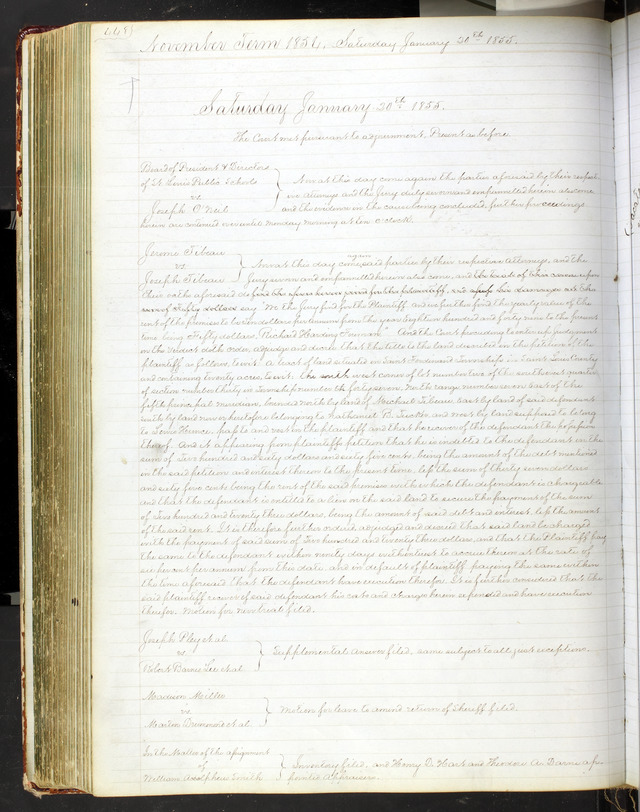 448
November Term 1854, Saturday January 20th 1855.
Saturday January 20th 1855.
The Court met pursuant to adjournment, Present as before
Board of President & Directors
of St Louis Public Schools
vs
Joseph O'Neil
Now at this day come again the parties aforesaid by their respect
ive attorneys and the Jury duly sworn and empannelled herein also come
and the evidence in the cause being concluded, further proceedings
herein are continued over until Monday morning at ten o'clock.
Jerome Tibeau
vs
Joseph Tibeau
Now at this day come again said parties by their respective Attorneys, and the
Jury sworn and empannelled herein also come, and upon
their oaths aforesaid
say "We the Jury find for the Plaintiff and we further find the yearly value of the
rent of the premises to be ten dollars per annum from the year Eighteen hundred and forty nine to the present
time being Fifty dollars, Richard Harding Foreman" And the Court proceeding to enter up judgment
on the verdict doth order, adjudge and decree that the title to the land described in the petition of the
plaintiff as follows, to wit: A tract of land situated in Saint Ferdinand Township in Saint Louis County
and containing twenty acres to wit, the south west corner of lot number two of the southeast quarter
of section number thirty in Township number forty seven, North range number seven East of the
fifth principal meridian, bounded North by land of Michael Tibeau East by land of said defendant
south by land now or heretofore belonging to Nathaniel B. Tucker and west by land supposed to belong
to Louis Hence, pass to and vest in the plaintiff and that he recover of the defendant the possession
thereof. And it appearing from plaintiffs petition that he is indebted to the defendant in the
sum of Two hundred and sixty dollars and sixty five cents, being the amount of the debt mentioned
in the said petition and interest thereon to the present time, less the sum of thirty seven dollars
and sixty five cents being the rent of the said premises with which the defendant is chargeable
and that the defendant is entitled to a lien on the said land to secure the payment of the sum
of Two hundred and twenty three dollars, being the amount of said debt and interest less the amount
of the said rent. It is therefore further ordered adjudged and decreed that said land be charged
with the payment of said sum of Two hundred and twenty three dollars, and that the Plaintiff pay
the same to the defendant within ninety days with interest to accrue thereon at the rate of
six per cent per annum from this date, and in default of plaintiff paying the same within
the time aforesaid that the defendant have execution therefor. It is further considered that the
said plaintiff recover of said defendant his costs and charges herein expended and have execution
therefor. Motion for new trial filed.
Joseph Pley et al
vs
Robert Barnes Lee et al
Supplemental answer filed, same subject to all just exceptions.
Madison Miller
vs
Martin Brummond et al
Motion for leave to amend return of Sheriff filed.
In the Matter of the assignment
of
William Adolphus Smith
Inventory filed, and Henry D. Hart and Theodore A. Barnes ap
pointed Appraisers.